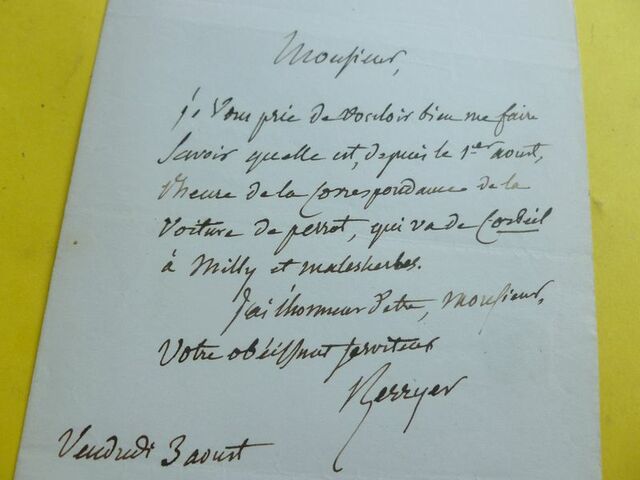 Monsieur,
je vous prie de vouloir bien me faire
savoir quelle est, depuis le 1er aoust,
l'heure de la correspondance de la
voiture de perrot, qui va de Corbeil
à Milly et malesherbes.
J'ai l'honneur d'etre, monsieur,
Votre obéissant serviteur
Berryer
Vendredi 3 aoust